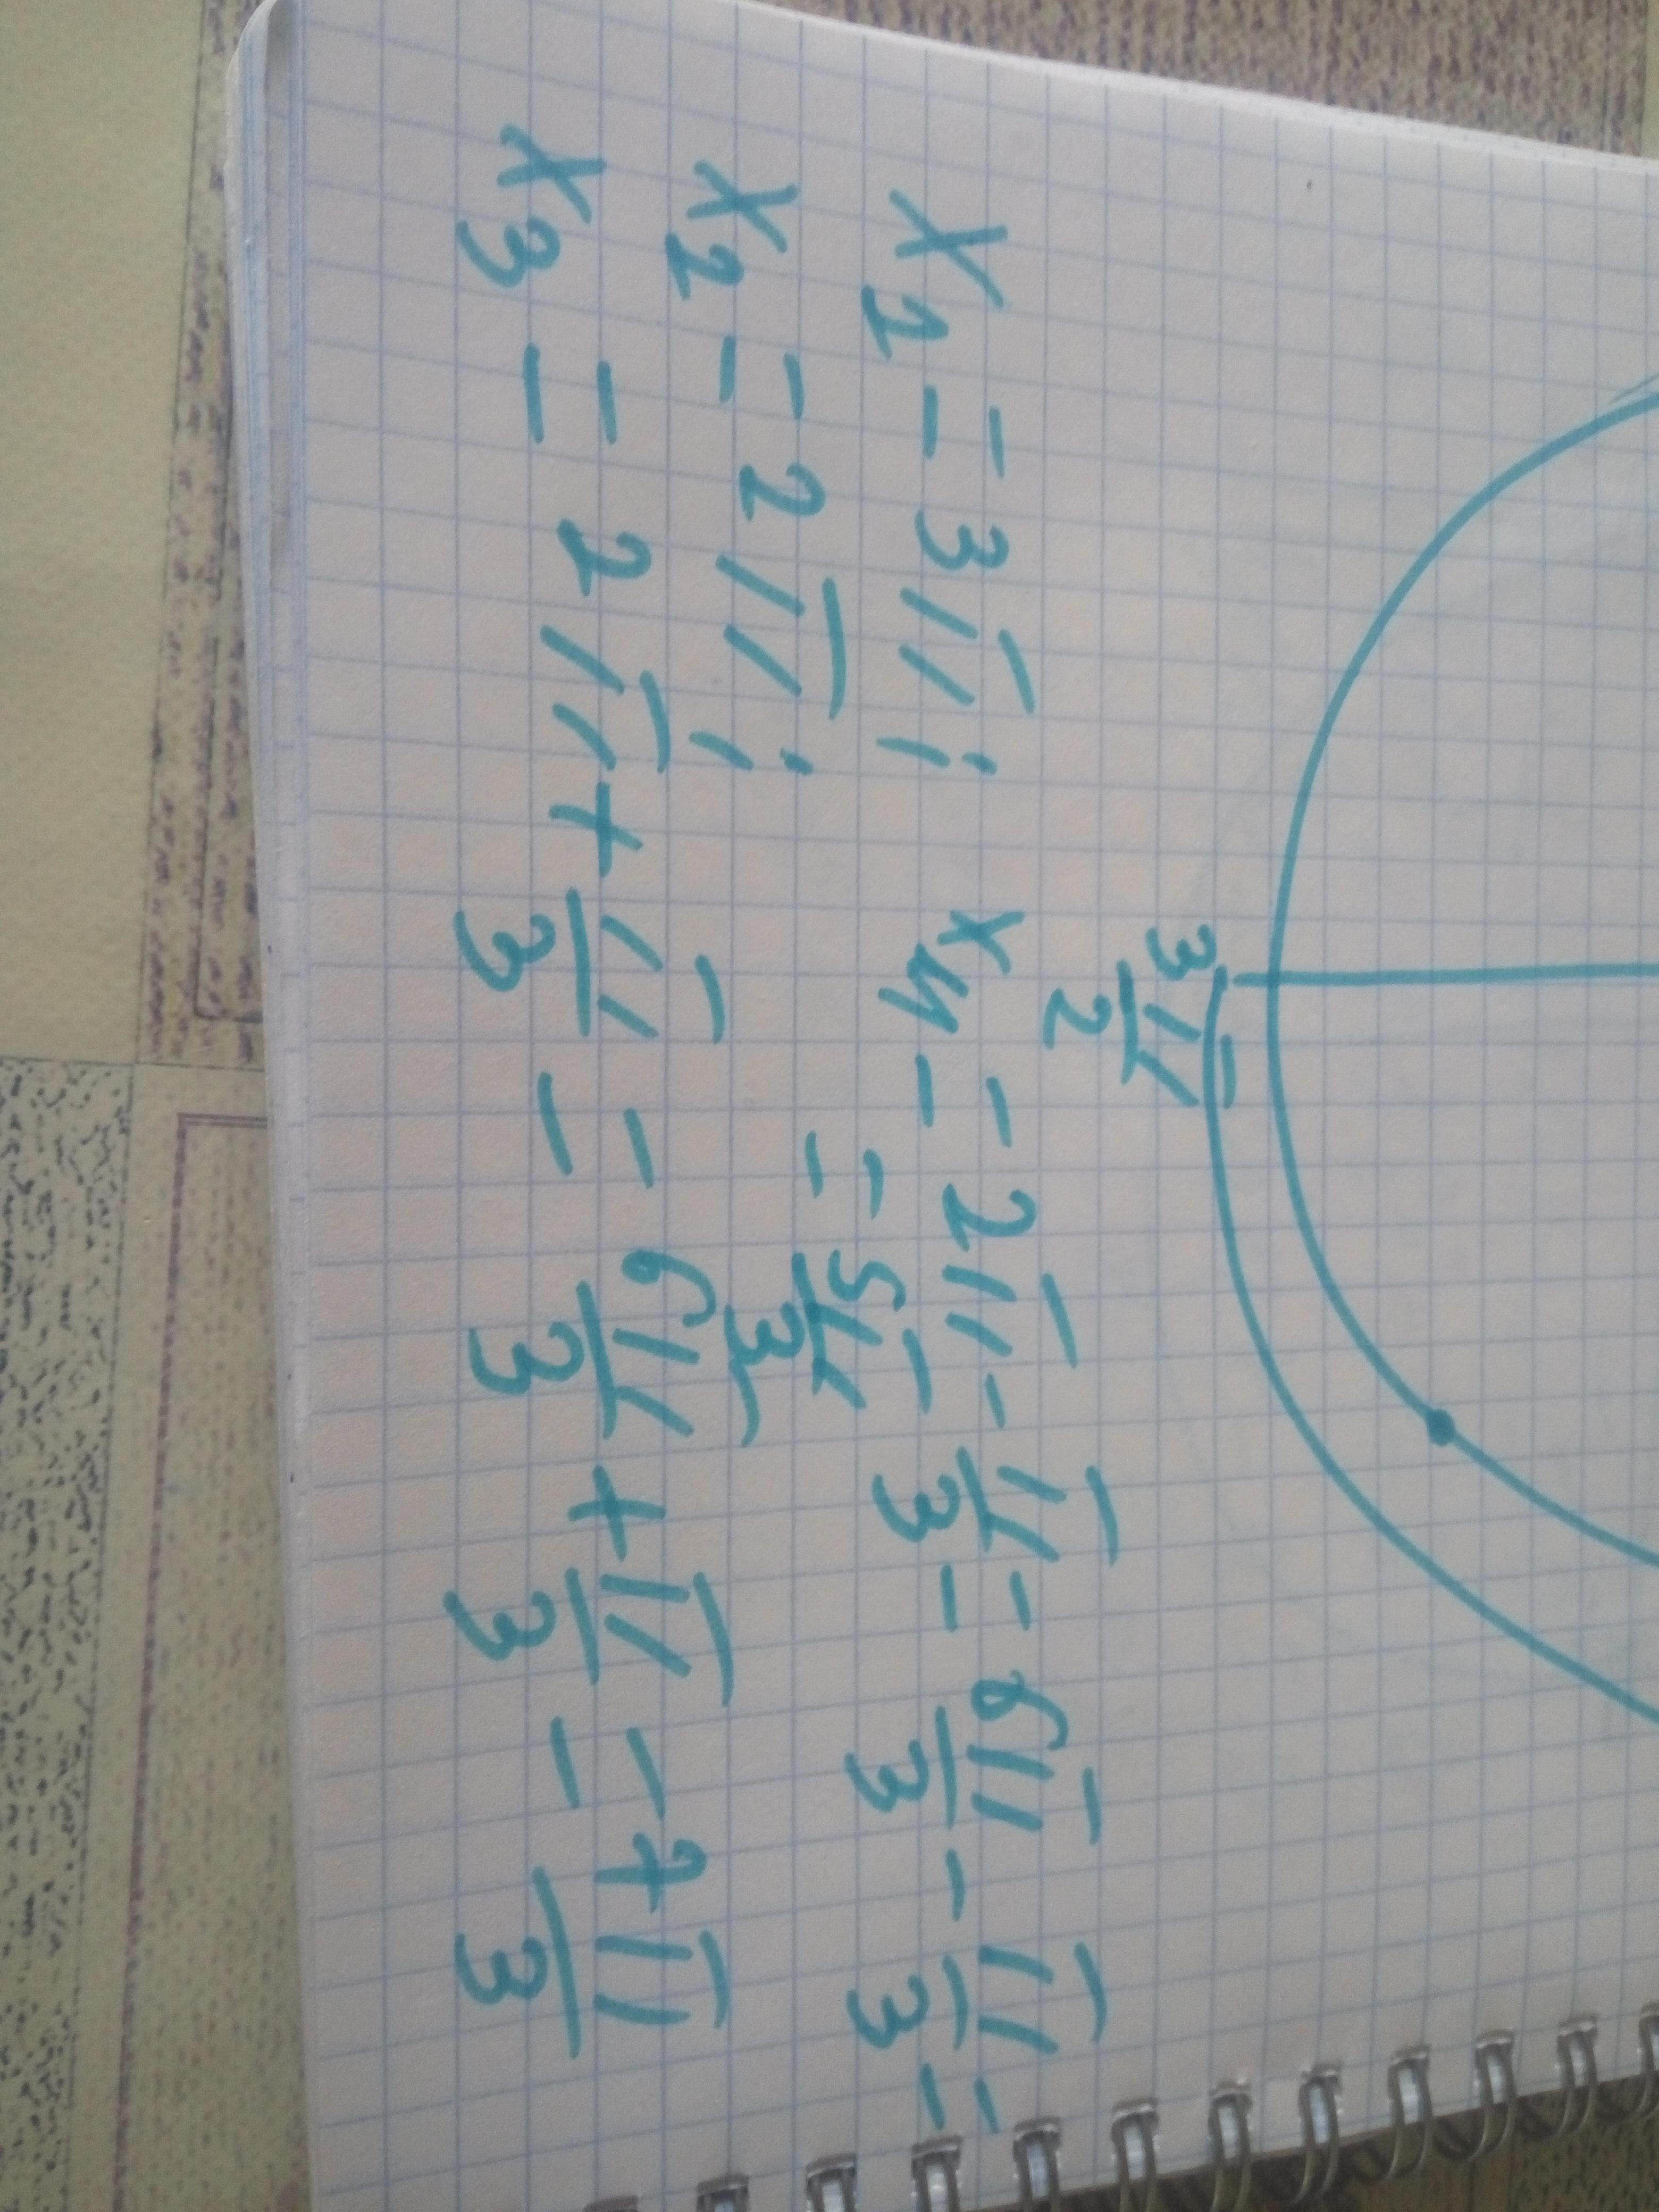 3π/2
x₁ = 3π;
x₄ = 2π - π/3 = 6π/3 - π/3 =
= 5π/3
x₂ = 2π;
x₃ = 2π + π/3 = 6π/3 + π/3 = 7π/3